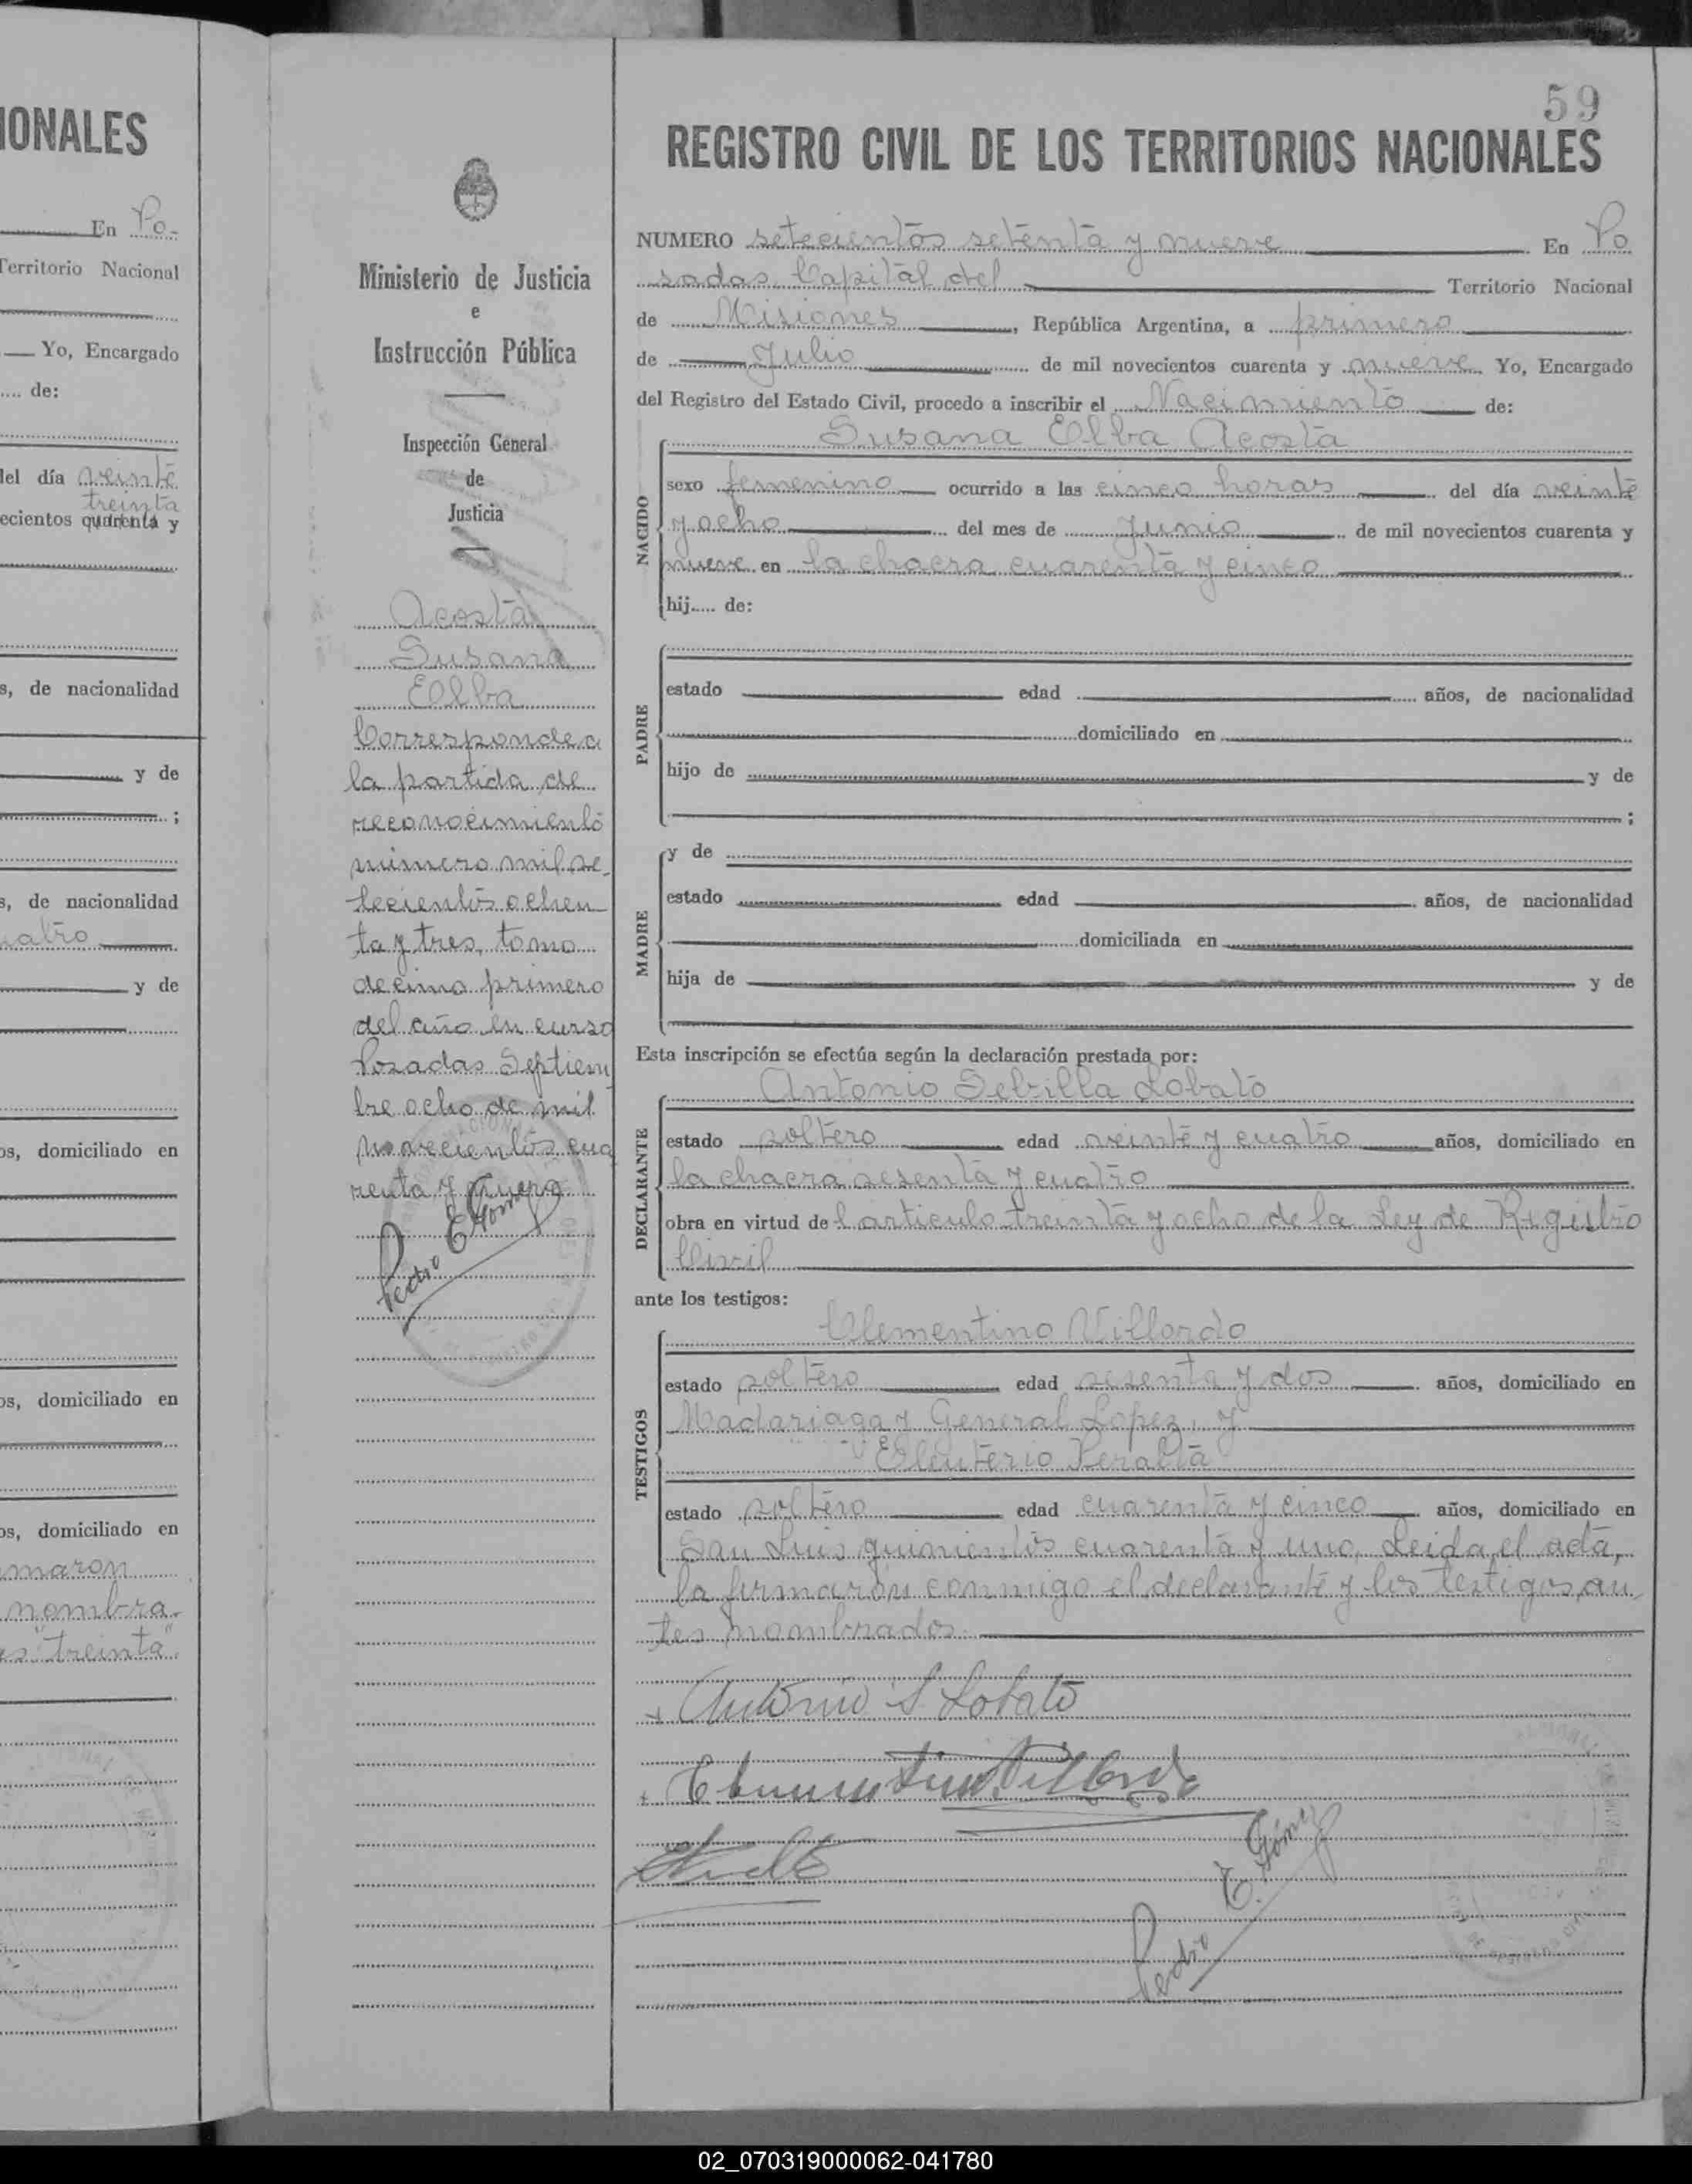 IONALES
En Po-
Territorio Nacional
Yo, Encargado
de:
del día veinte
treinta
ecientos cuarenta y
s, de nacionalidad
y de
;
s, de nacionalidad
uatro
y de
os, domiciliado en
os, domiciliado en
os, domiciliado en
maron
nombra-
as "treinta".
Ministerio de Justicia
e
Instrucción Pública
Inspección General
de
Justicia
Acosta
Susana
Elba
Corresponde a
la partida de
reconocimiento
número mil se-
tecientos ochen
ta y tres, tomo
decimo primero
del año en curso
Posadas Septiem
bre ocho de mil
novecientos cua
renta y nueve
Pedro E. Gómez
59
REGISTRO CIVIL DE LOS TERRITORIOS NACIONALES
NUMERO setecientos setenta y nueve En Po
sadas Capital del Territorio Nacional
de Misiones, República Argentina, a primero
de Julio de mil novecientos cuarenta y nueve Yo, Encargado
del Registro del Estado Civil, procedo a inscribir el Nacimiento de:
Susana Elba Acosta
NACIDO
sexo femenino ocurrido a las cinco horas del día veinte
y ocho del mes de Junio de mil novecientos cuarenta y
nueve en la chacra cuarenta y cinco
hij..... de:
PADRE
estado edad años, de nacionalidad
domiciliado en
hijo de y de
;
MADRE
y de
estado edad años, de nacionalidad
domiciliada en
hija de y de
Esta inscripción se efectúa según la declaración prestada por:
Antonio Sebilla Lobato
DECLARANTE
estado soltero edad veinte y cuatro años, domiciliado en
la chacra sesenta y cuatro
obra en virtud del articulo treinta y ocho de la Ley de Registro
Civil
ante los testigos:
Clementino Villordo
TESTIGOS
estado soltero edad sesenta y dos años, domiciliado en
Madariaga y General Lopez, y
Eleuterio Peralta
estado soltero edad cuarenta y cinco años, domiciliado en
San Luis quinientos cuarenta y uno. Leida el acta,
la firmaron conmigo el declarante y los testigos an
tes nombrados.
Antonio S Lobato
Clementino Villordo
Pedro E. Gómez
02_070319000062-041780